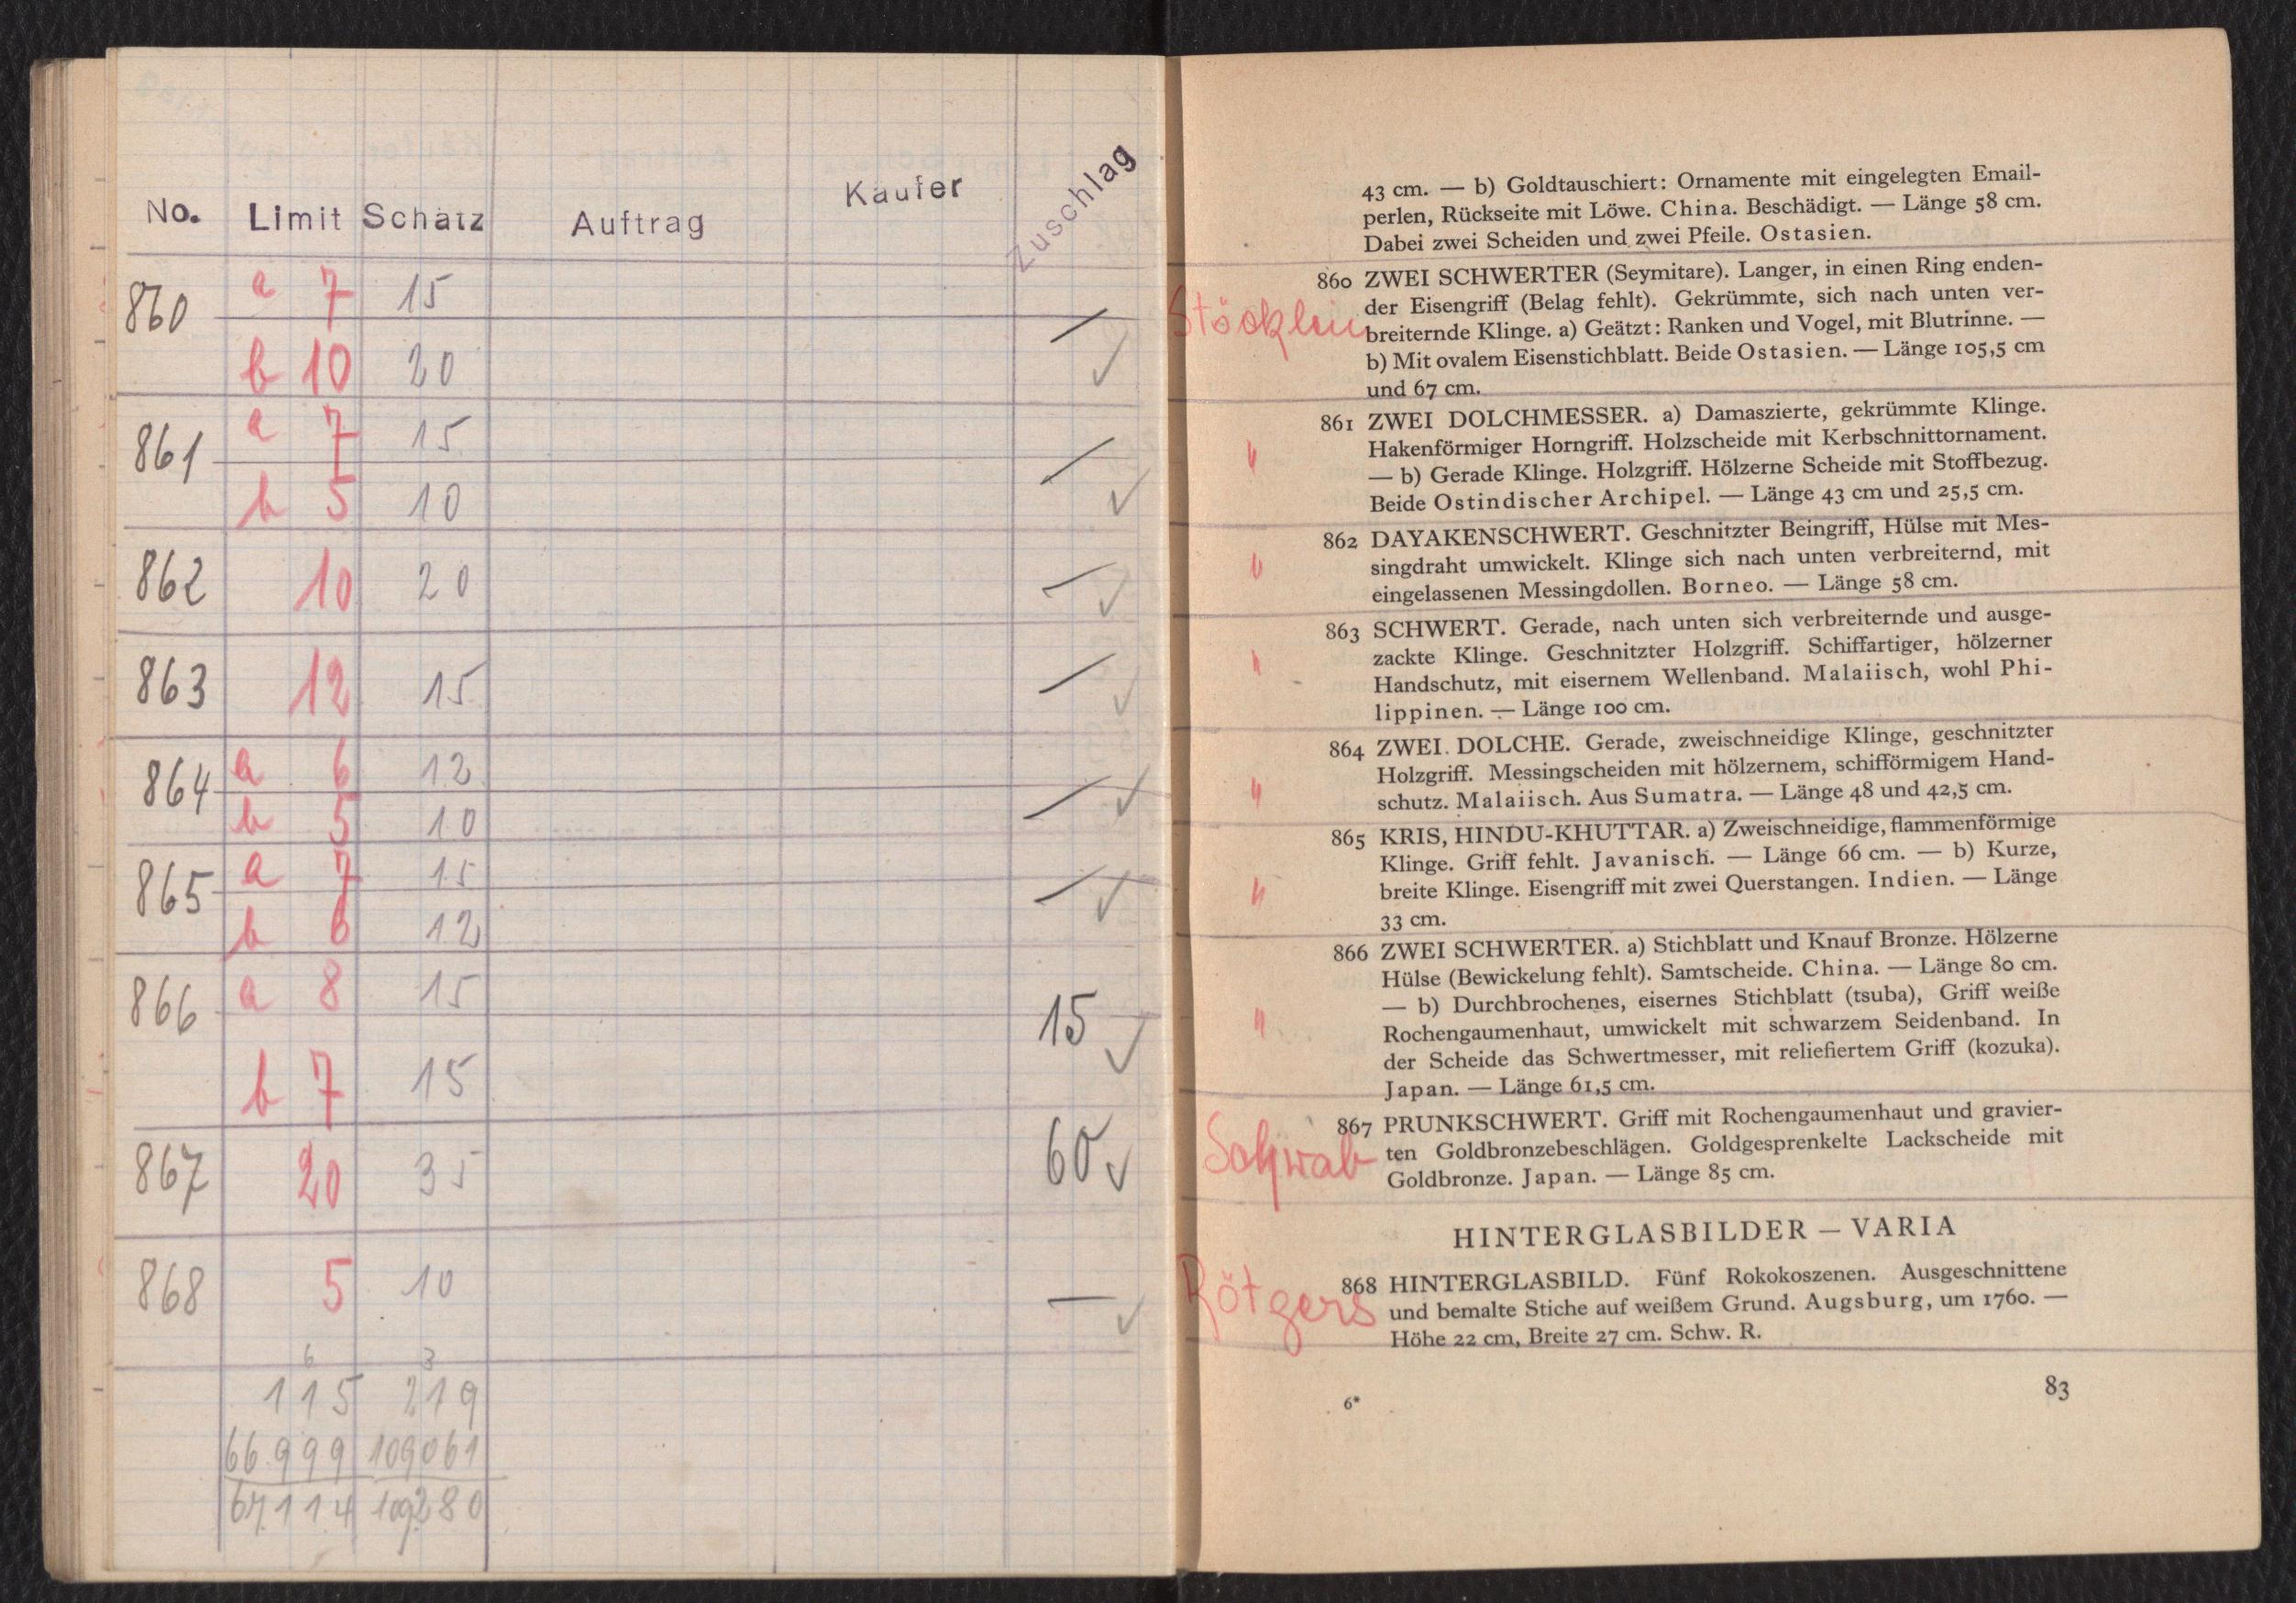 No. Limit Schätz Auftrag Käufer Zuschlag
860 a 7 15 —
b 10 20 ✓
861 a 7 15 —
b 5 10 ✓
862 10 20 — ✓
863 12 15 — ✓
864 a 6 12
b 5 10 — ✓
865 a 7 15 — ✓
b 6 12
866 a 8 15 15 ✓
b 7 15
867 20 35 60 ✓
868 5 10 — ✓
6 3
115 219
66999 109061
67114 109280
43 cm. — b) Goldtauschiert: Ornamente mit eingelegten Email-
perlen, Rückseite mit Löwe. China. Beschädigt. — Länge 58 cm.
Dabei zwei Scheiden und zwei Pfeile. Ostasien.
860 ZWEI SCHWERTER (Seymitare). Langer, in einen Ring enden-
der Eisengriff (Belag fehlt). Gekrümmte, sich nach unten ver-
Stöcklein breiternde Klinge. a) Geätzt: Ranken und Vogel, mit Blutrinne. —
b) Mit ovalem Eisenstichblatt. Beide Ostasien. — Länge 105,5 cm
und 67 cm.
861 ZWEI DOLCHMESSER. a) Damaszierte, gekrümmte Klinge.
" Hakenförmiger Horngriff. Holzscheide mit Kerbschnittornament.
— b) Gerade Klinge. Holzgriff. Hölzerne Scheide mit Stoffbezug.
Beide Ostindischer Archipel. — Länge 43 cm und 25,5 cm.
862 DAYAKENSCHWERT. Geschnitzter Beingriff, Hülse mit Mes-
" singdraht umwickelt. Klinge sich nach unten verbreiternd, mit
eingelassenen Messingdollen. Borneo. — Länge 58 cm.
863 SCHWERT. Gerade, nach unten sich verbreiternde und ausge-
" zackte Klinge. Geschnitzter Holzgriff. Schiffartiger, hölzerner
Handschutz, mit eisernem Wellenband. Malaiisch, wohl Phi-
lippinen. — Länge 100 cm.
864 ZWEI DOLCHE. Gerade, zweischneidige Klinge, geschnitzter
Holzgriff. Messingscheiden mit hölzernem, schifförmigem Hand-
" schutz. Malaiisch. Aus Sumatra. — Länge 48 und 42,5 cm.
865 KRIS, HINDU-KHUTTAR. a) Zweischneidige, flammenförmige
Klinge. Griff fehlt. Javanisch. — Länge 66 cm. — b) Kurze,
" breite Klinge. Eisengriff mit zwei Querstangen. Indien. — Länge
33 cm.
866 ZWEI SCHWERTER. a) Stichblatt und Knauf Bronze. Hölzerne
Hülse (Bewickelung fehlt). Samtscheide. China. — Länge 80 cm.
— b) Durchbrochenes, eisernes Stichblatt (tsuba), Griff weiße
" Rochengaumenhaut, umwickelt mit schwarzem Seidenband. In
der Scheide das Schwertmesser, mit reliefiertem Griff (kozuka).
Japan. — Länge 61,5 cm.
867 PRUNKSCHWERT. Griff mit Rochengaumenhaut und gravier-
Schwab ten Goldbronzebeschlägen. Goldgesprenkelte Lackscheide mit
Goldbronze. Japan. — Länge 85 cm.
HINTERGLASBILDER — VARIA
868 HINTERGLASBILD. Fünf Rokokoszenen. Ausgeschnittene
Rötgers und bemalte Stiche auf weißem Grund. Augsburg, um 1760. —
Höhe 22 cm, Breite 27 cm. Schw. R.
6*
83